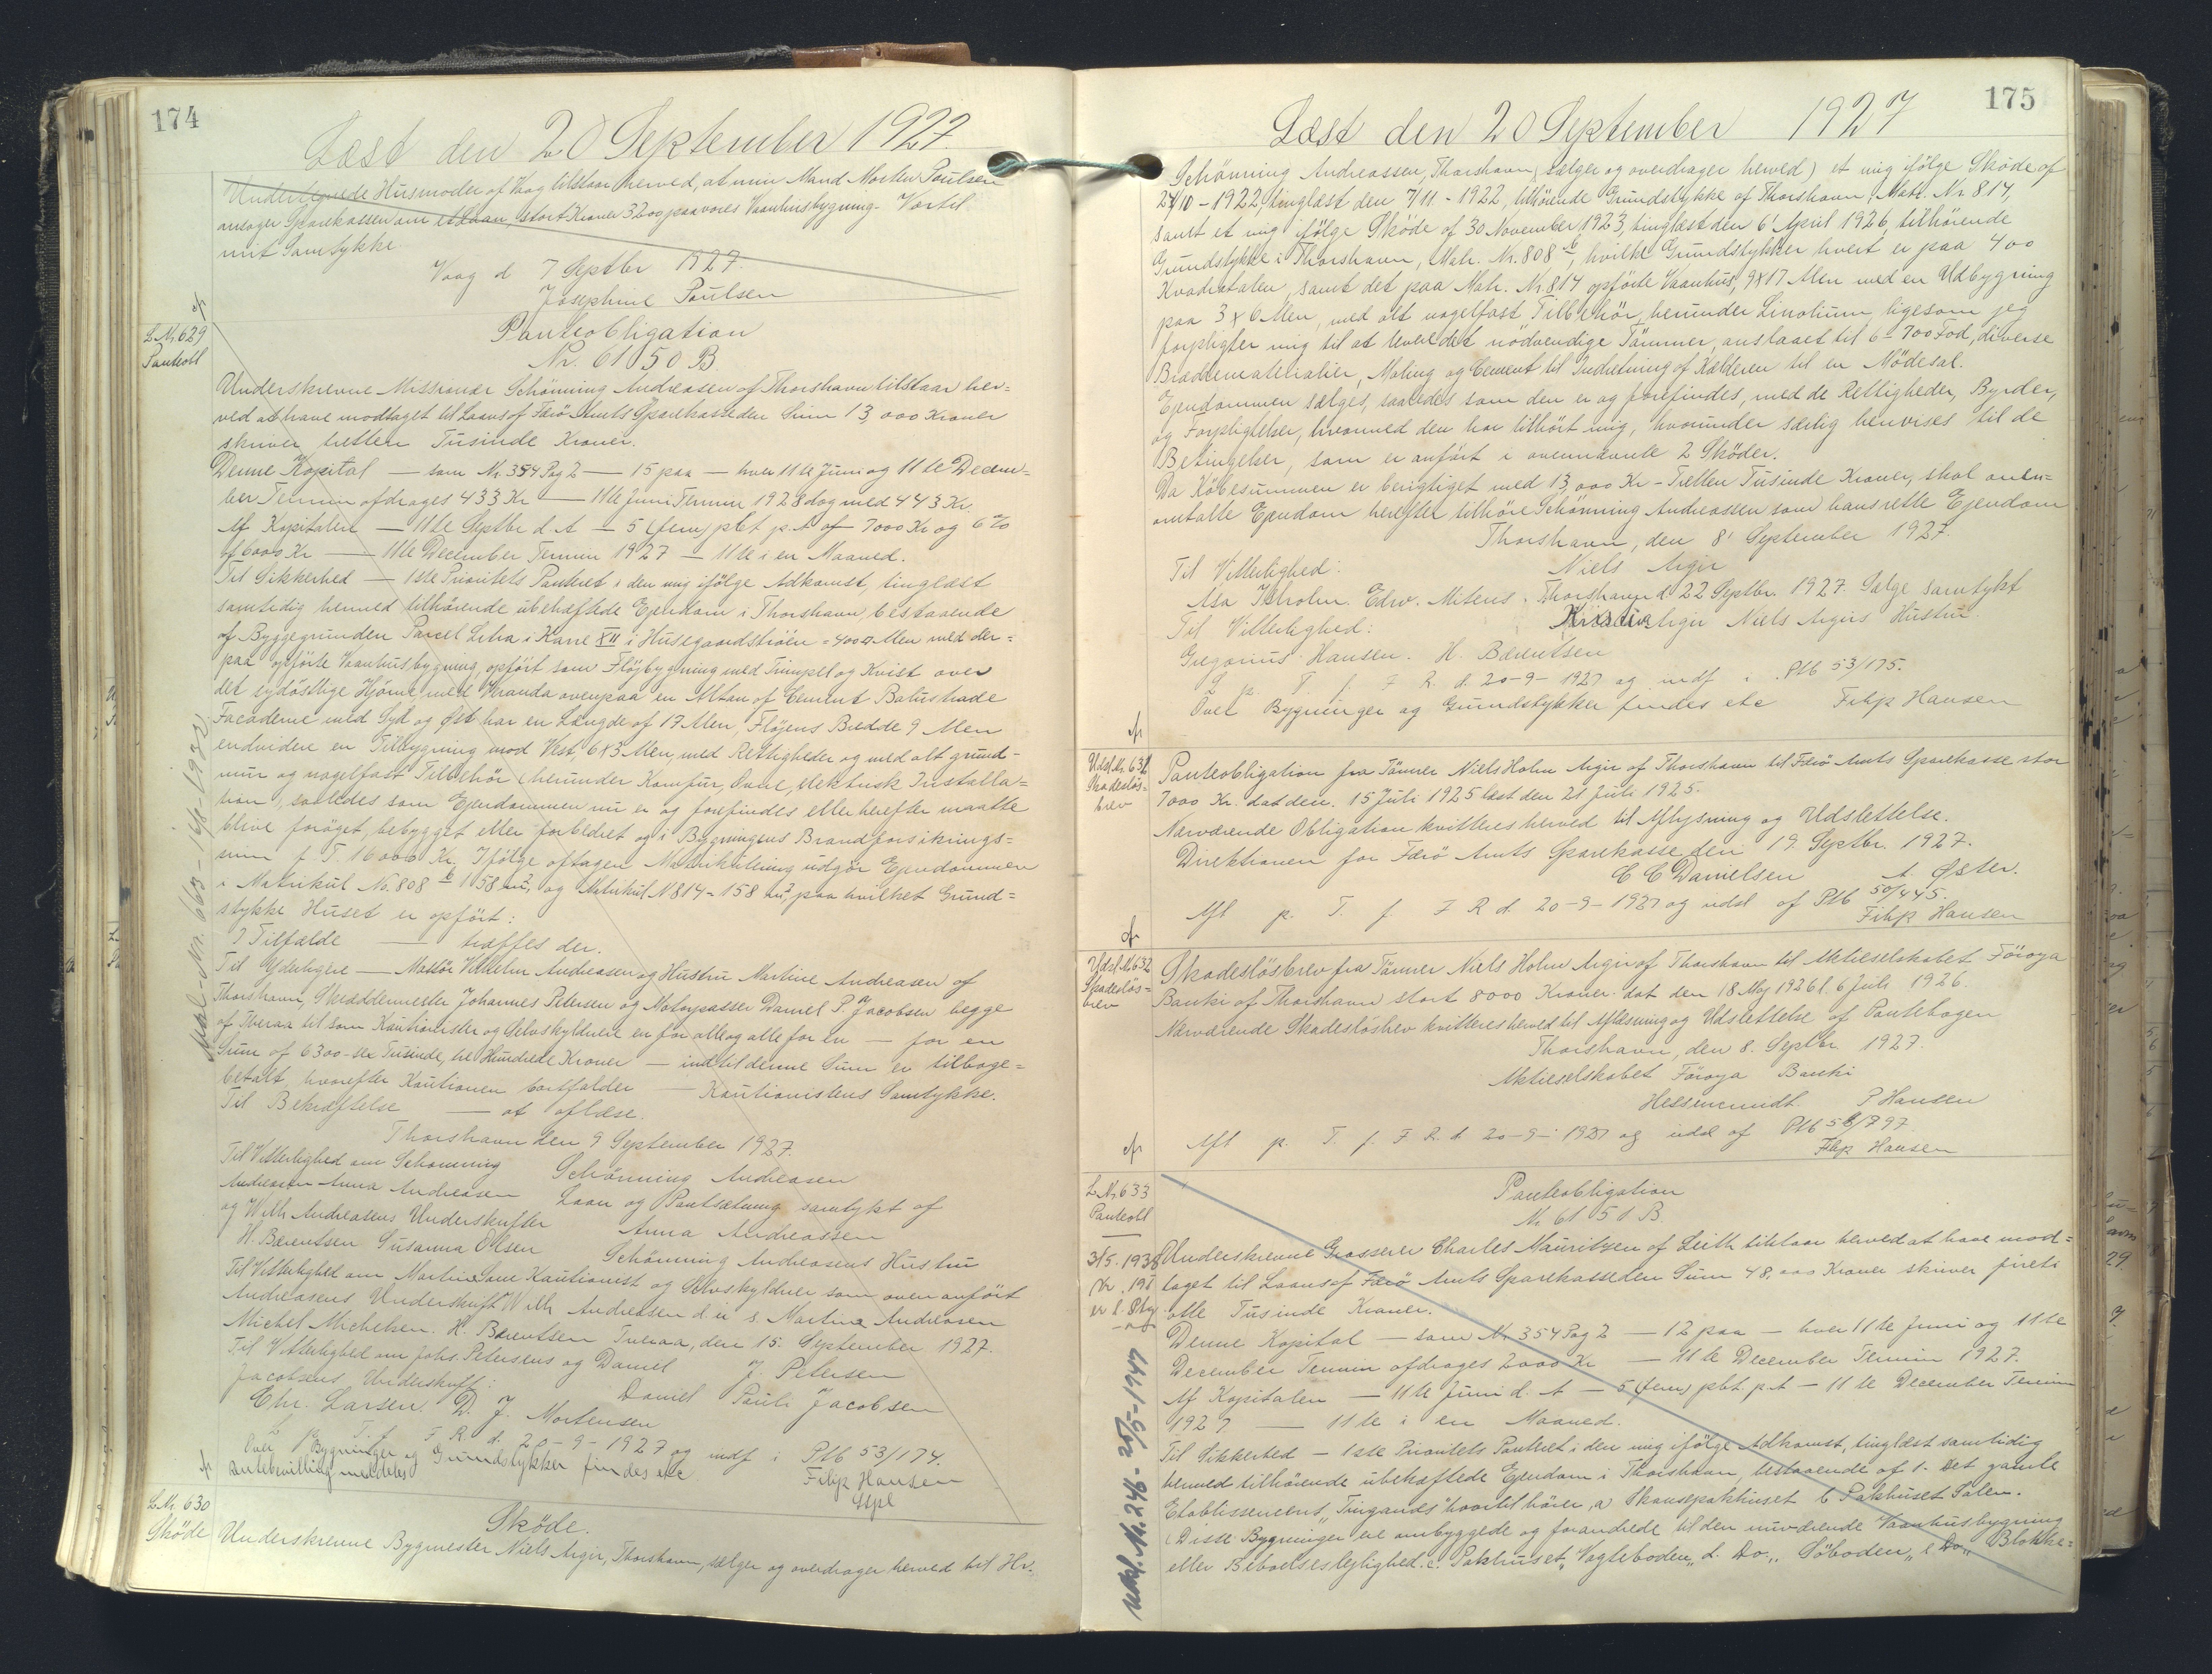 174
Læst den 20 September 1927.
Undertegnede Husmoder af Vaag tilstaar herved, at min Mand Morten Poulsen
ansøger Sparekassen om et Laan, stort Kroner 3200 paa vores Vaanhusbygning. Hertil
mit Samtykke
Vaag d 7 Septbr 1927.
Josephine Poulsen
L Nr 629
Panteobl
Panteobligation
Nr. 6150 B
Underskrevne Missionær Schönning Andreasen af Thorshavn tilstaar her=
ved at have modtaget til Laans af Færö Amts Sparekasse den Sum 13,000 Kroner
skriver tretten Tusinde Kroner.
Denne Kapital — som Nr. 354 Pag 2 — 15 paa — hver 11te Juni og 11te Decem-
ber Termin afdrages 433 Kr — 11te Juni Termin 1928 dog med 443 Kr.
Af Kapitalen — 11te Septbr d. A — 5 (fem) pCt p. A af 7000 Kr og 6 %
af 6000 Kr — 11te December Termin 1927 — 11te i en Maaned.
Til Sikkerhed — 1ste Prioritets Panteret i den mig ifölge Adkomst, tinglæst
samtidig hermed tilhørende ubehæftede Ejendom i Thorshavn, bestaaende
af Byggegrunden Parcel Litra i Karré XII i Husegaardströen = 400 □ Alen med der=
paa opförte Vaanhusbygning, opfört som Flöjbygning med Trempel og Kvist over
det sydöstlige Hjörne, med Veranda ovenpaa en Altan af Cement Balustrade
Facaderne mod Syd og Øst har en Længde af 17 Alen, Flöjens Bredde 9 Alen
endvidere en Tilbygning mod Vest, 6x3 Alen, med Rettigheder og med alt grund-
mur og nagelfast Tilbehör (herunder Komfur, Ovne, elektrisk Installa=
tion, saaledes som Ejendommen nu er og forefindes eller herefter maatte
blive foröget, bebygget eller forbedret og i Bygningens Brandforsikrings=
sum p. T. 16000 Kr. Ifölge aftagen Matrikulering udgör Ejendommen
i Matrikul No. 808 b 158 m², og Matrikul N 814 = 158 m², paa hvilket Grund=
stykke Huset er opfört:
I Tilfælde — træffes der.
Til Yderligere — Massör Vilhelm Andreasen og Hustru Martine Andreasen af
Thorshavn, Skræddermester Johannes Petersen og Motorpasser Daniel P. Jacobsen begge
af Tveraa til som Kautionister og Selvskyldnere en for alle og alle for en — for en
Sum af 6300 - sex Tusinde, tre Hundrede Kroner — indtil denne Sum er tilbage=
betalt, hvorefter Kautionen bortfalder — Kautionistens Samtykke.
Til Bekræftelse — at aflæse.
Thorshavn den 9 September 1927.
Til Vitterlighed om Schönning Schönning Andreasen
Andreasen Anna Andreasen Laan og Pantsætning samtykt af
og Wilh Andreasens Underskrifter Anna Andreassen
H. Bærentsen Susanna Olsen Schönning Andreasens Hustru
Til Vitterlighed om Martine Som Kautionist og Selvskyldner som oven anfört
Andreasens Underskrift Wilh Andreasen s. Martine Andreasen
Michel Michelsen. H. Bærentsen Tveraa, den 15. September 1927.
Til Vitterlighed om Johs. Petersens og Daniel J. Petersen
Jacobsens Underskrift: Daniel Pauli Jacobsen
Chr. Larsen. D. J. Mortensen
L. p. T. f. F R. d. 20-9-1927 og indf i Ptb 53/174.
Over Bygninger og Grundstykker findes etc Filip Hansen
Antebevilling meddeles
Udsl. Nr. 663 - 16/8-1932
L Nr. 630
Sköde
Sköde.
Underskrevne Bygmester Niels Argir, Thorshavn, sælger og overdrager herved til Hr.
175
Læst den 20 September 1927
Schönning Andreassen, Thorshavn, (sælger og overdrager herved) et mig ifölge Sköde af
24/10 - 1922, tinglæst den 7/11 - 1922, tilhörende Grundstykke af Thorshavn, Matr. Nr 814,
samt et mig ifölge Sköde af 30 November 1923, tinglæst den 6' April 1926, tilhörende
Grundstykke i Thorshavn, Matr. Nr. 808 b, hvilke Grundstykker hvert er paa 400
Kvadratalen, samt det paa Matr. Nr 814 opförte Vaanhus, 9x17 Alen med en Udbygning
paa 3x6 Alen, med alt nagelfast Tilbehör, herunder Linolium, ligesom jeg
forpligter mig til at levere det nödvendige Tömmer, anslaaet til 6-700 Fod, diverse
Bræddematerialier, Maling og Cement til Indretning af Kælderen til en Mödesal.
Ejendommen sælges, saaledes som den er og forefindes, med de Rettigheder, Byrder,
og Forpligtelser, hvormed den har tilhört mig, hvorunder særlig henvises til de
Betingelser, som er anfört i ovennævnte 2 Sköder.
Da Köbesummen er berigtiget med 13,000 Kr - Tretten Tusinde Kroner, skal oven=
omtalte Ejendom herefter tilhöre Schönning Andreassen som hans rette Ejendom
Thorshavn, den 8' September 1927.
Til Vitterlighed: Niels Argir
Asa Isholm. Edw. Mitens. Thorshavn d. 22 Septbr. 1927. Salget samtykt
Til Vitterlighed: Kristine Argir Niels Argirs Hustru
Gregorius Hansen. H. Bærentsen
L. p. T. f. F R. d. 20-9-1927 og indf i Ptb 53/175.
Over Bygninger og Grundstykker findes etc Filip Hansen
Udsl. Nr. 631
Skadeslös=
brev
Panteobligation fra Tömrer Niels Holm Argir af Thorshavn til Færö Amts Sparekasse stor
7000 Kr. dat den. 15 Juli 1925 læst den 21 Juli 1925.
Nærværende Obligation kvitteres herved til Aflysning og Udslettelse.
Direktionen for Færö Amts Sparekasse, den 19. Septbr. 1927.
C C Danielsen A Øster.
Afl p. T. f. F R d. 20-9-1927 og udsl af Ptb 50/445.
Filip Hansen
Udsl. Nr 632
Skadeslös=
brev
Skadeslösbrev fra Tömrer Niels Holm Argir af Thorshavn til Aktieselskabet Föroya
Banki af Thorshavn stort 8000 Kroner. dat den 18 Maj 1926 l. 6 Juli 1926.
Nærværende Skadeslösbrev kvitteres herved til Aflæsning og Udslettelse af Pantebogen
Thorshavn, den 8. Septbr. 1927.
Aktieselskabet Föroya Banki
P Hansen
Afl p. T. f. F R. d. 20-9-1927 og udsl af Ptb
Filip Hansen
L Nr. 633
Panteobl
Panteobligation
Nr. 6151 B.
Underskrevne Grosserer Charles Mauritzen af Leith tilstaar herved at have mod=
taget til Laans af Færö Amts Sparekasse den Sum 48,000 Kroner skriver fireti
otte Tusinde Kroner.
Denne Kapital — som Nr 354 Pag 2 — 12 paa — hver 11te Juni og 11te
December Termin afdrages 2000 Kr — 11te December Termin 1927.
Af Kapitalen — 11te Juni d. A — 5 (fem) pCt. p.A — 11te December Termin
1927 — 11te i en Maaned.
Til Sikkerhed — 1ste Prioritets Panteret i den mig ifölge Adkomst, tinglæst samtidig
hermed tilhörende ubehæftede Ejendom i Thorshavn, bestaaende af 1. Det gamle
Etablissement "Tinganæs" hvortil hörer, a) Skansepakhuset b Pakhuset Salen.
(Disse Bygninger ere ombyggede og forandrede til den nuværende Vaanhusbygning
eller Beboelseslejlighed. c. Pakhuset "Vagteboden" d. Do. "Söboden" e Do "Blokke=
3/5. 1938
Nr. 191
Udsl. Nr. 246 - 20/5-1947